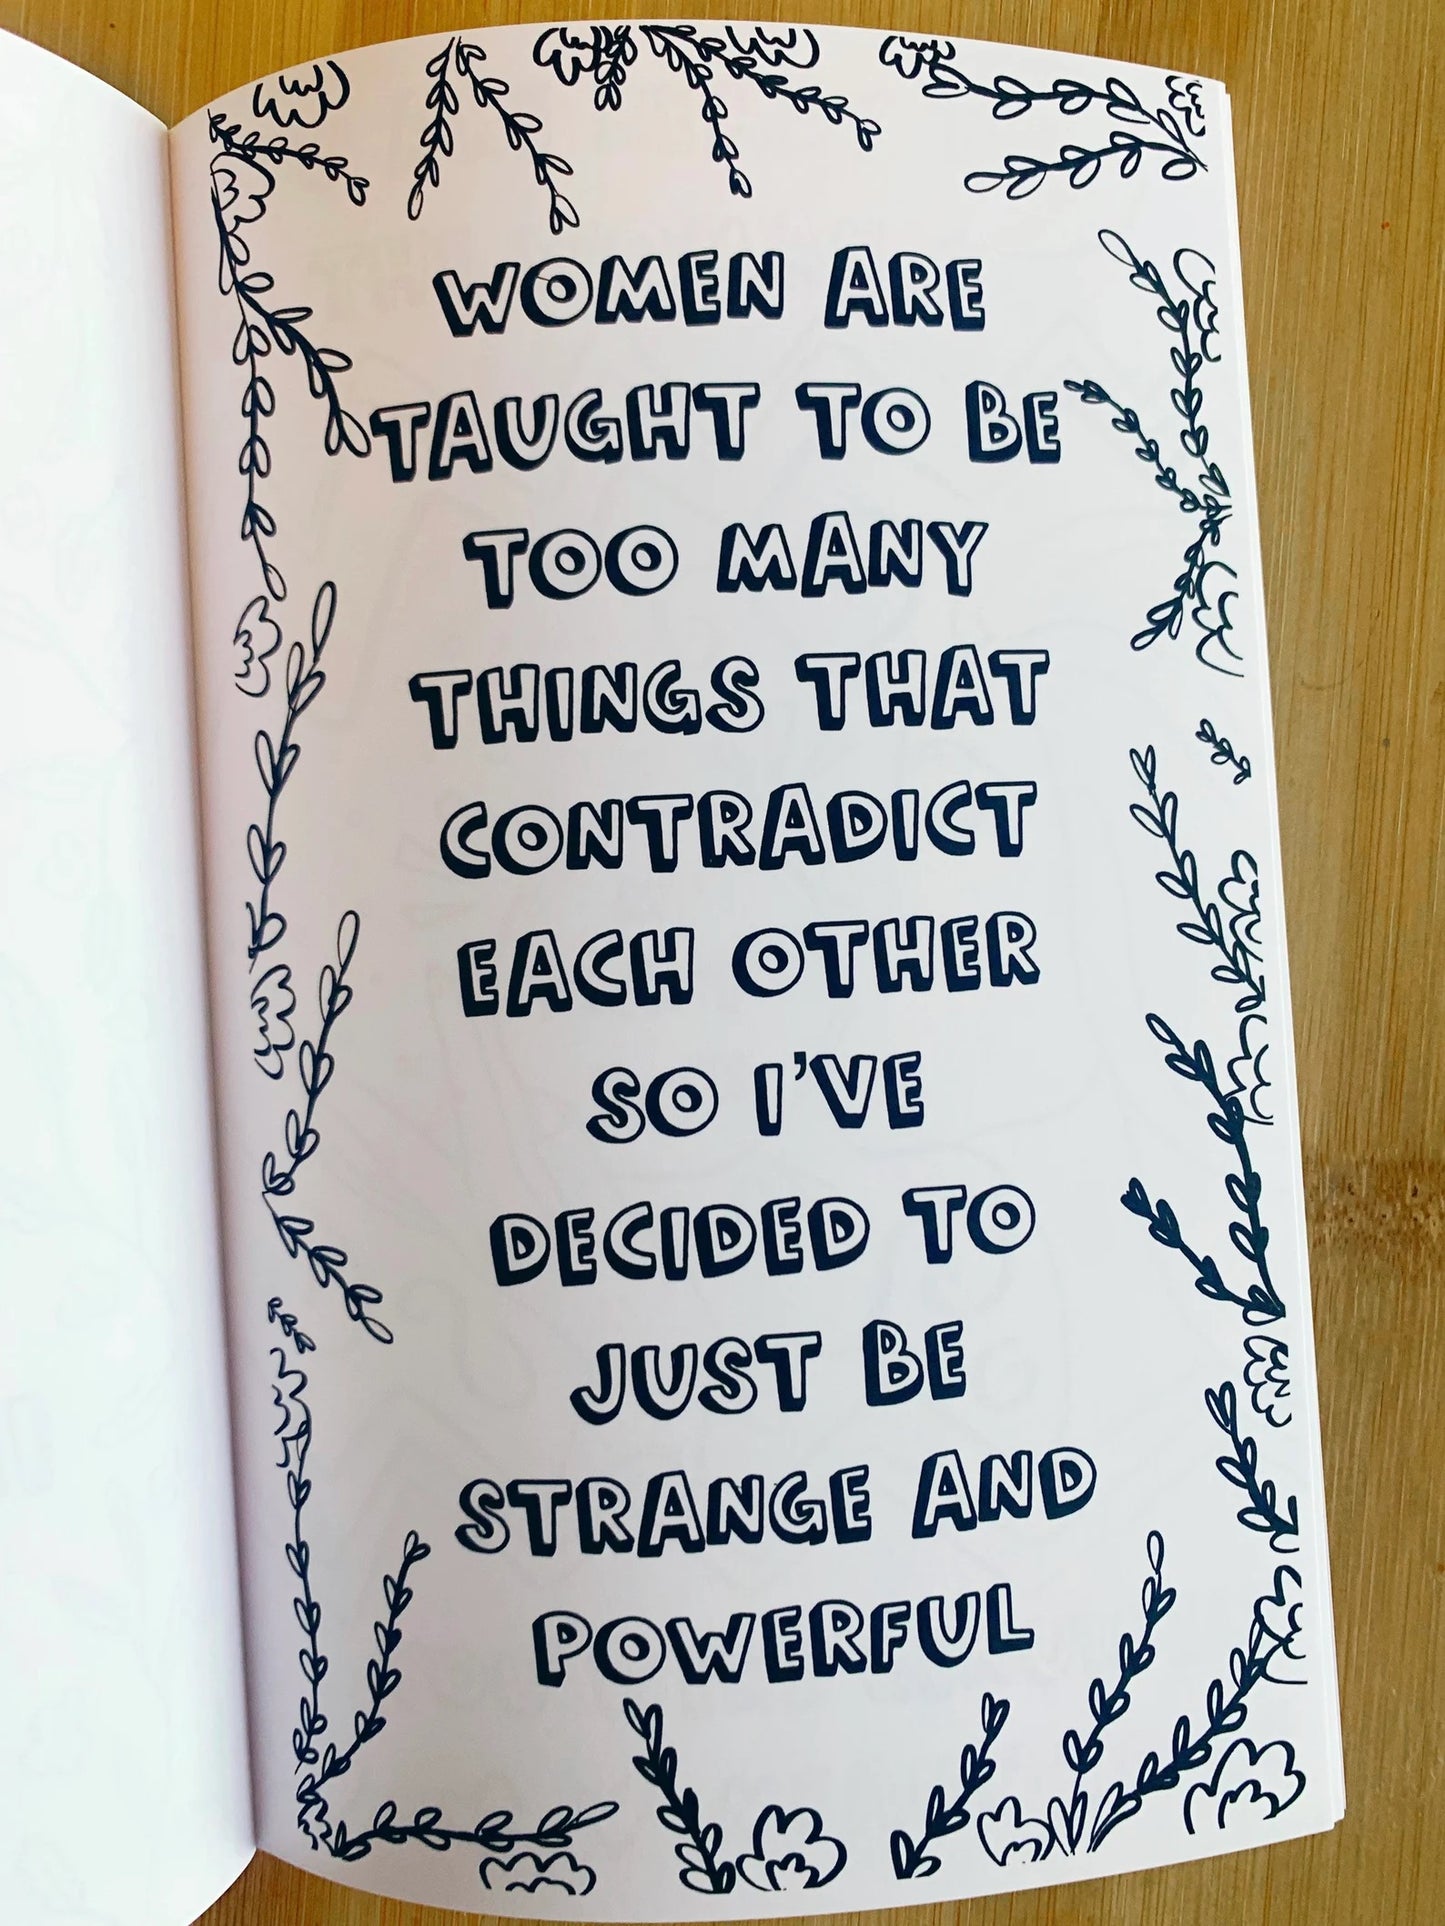 WOMEN ARE
TAUGHT TO BE
TOO MANY
THINGS THAT
CONTRADICT
EACH OTHER
SO I'VE
DECIDED TO
JUST BE
STRANGE AND
POWERFUL